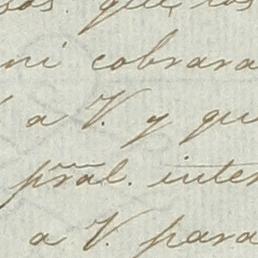 que los
ni cobrara
a V. y qu
pral. inter
a V. para